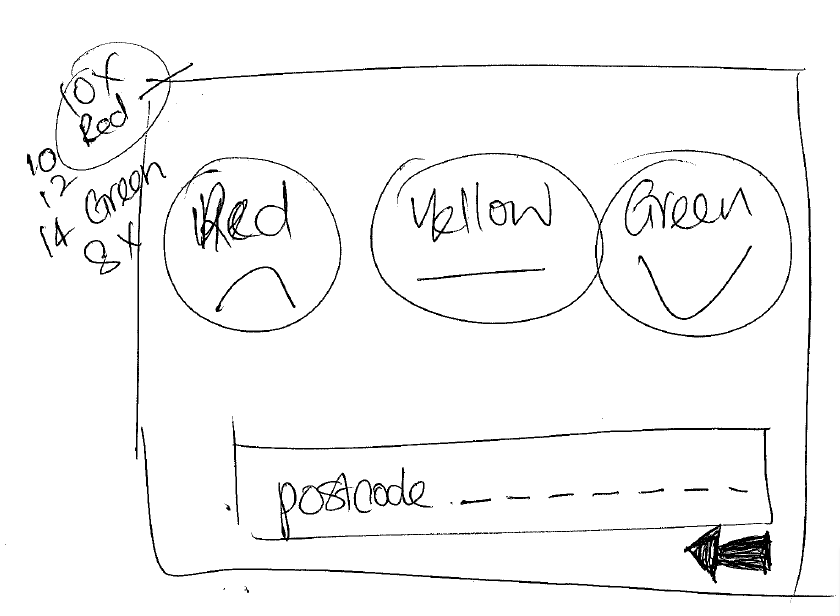 10X
Red
10
12
14 Green
8X
Red
Yellow
Green
postcode